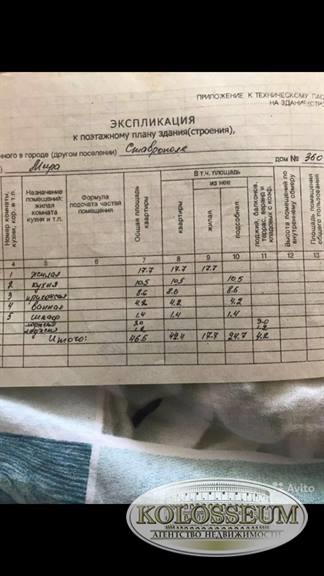 ПРИЛОЖЕНИЕ К ТЕХНИЧЕСКОМУ ПАС
НА ЗДАНИЕ(СТРОЕ
ЭКСПЛИКАЦИЯ
к поэтажному плану здания(строения),
нного в городе (другом поселении) Ставрополе
Мира дом № 360
Номер комнаты, кухни, кор. и т.п. Назначение помещений: жилая комната кухня и т.п. Формула подсчета частей помещения Общая площадь квартиры В т.ч. площадь квартиры из нее жилая подсобная лоджий, балконов, террас, веранд и кладовых с коэф. Высота помещений по внутреннему обмеру Площадь помещений общего пользования
4 5 6 7 8 9 10 11 12 13
1 жилая 17.7 17.7 17.7
2 кухня 10.5 10.5 10.5
3 прихожая 8.6 8.6 8.6
4 ванная 4.2 4.2 4.2
5 шкаф 1.4 1.4 1.4
лоджия 3.0 3.0
лоджия 1.2 1.2
Итого: 46.6 42.4 17.7 24.7 4.2
Avito
KOLOSSEUM
АГЕНТСТВО НЕДВИЖИМОСТИ